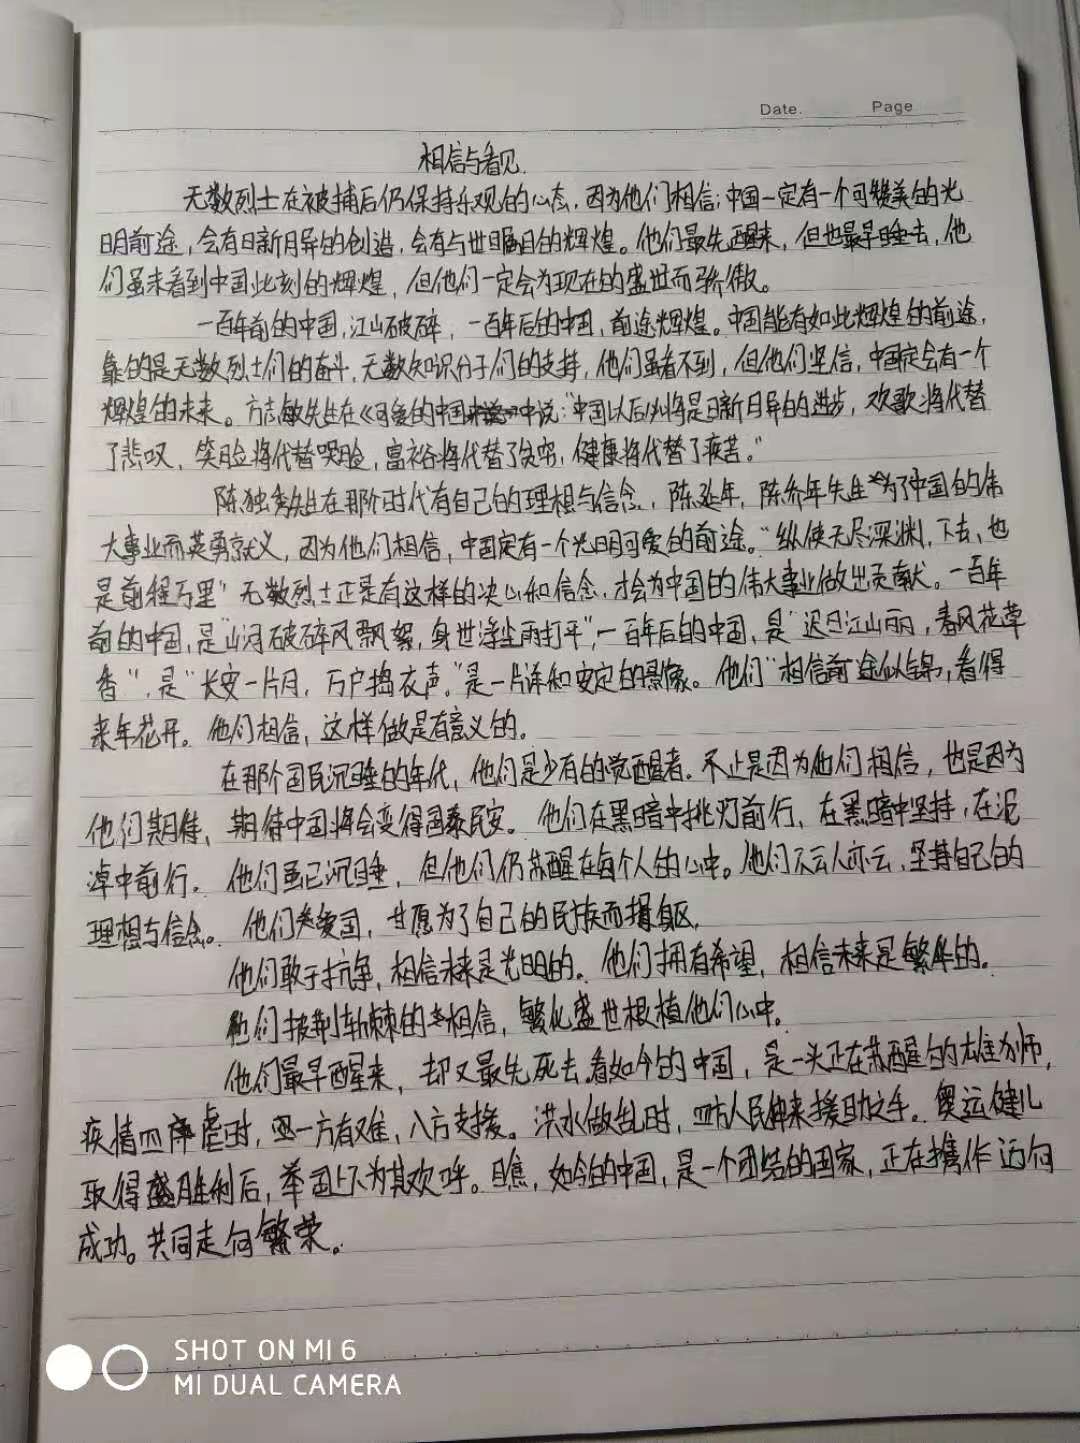 Date.
Page
相信与看见
无数烈士在被捕后仍保持乐观的心态，因为他们相信：中国一定有一个可赞美的光
明前途，会有日新月异的创造，会有与世瞩目的辉煌。他们最先醒来，但也最早睡去，他
们虽未看到中国此刻的辉煌，但他们一定会为现在的盛世而骄傲。
一百年前的中国，江山破碎，一百年后的中国，前途辉煌。中国能有如此辉煌的前途，
靠的是无数烈士们的奋斗，无数知识分子们的支持，他们虽看不到，但他们坚信，中国定会有一个
辉煌的未来。方志敏先生在《可爱的中国 中说："中国以后 将是日新月异的进步，欢歌将代替
了悲叹，笑脸将代替哭脸，富裕将代替了贫穷，健康将代替了疾苦。"
陈独秀先生在那个时代有自己的理想与信念，陈延年，陈乔年先生为了中国的伟
大事业而英勇就义，因为他们相信，中国定有一个光明可爱的前途。"纵使无尽深渊，下去，也
是前程万里"无数烈士正是有这样的决心和信念，才会为中国的伟大事业做出贡献。一百年
前的中国，是"山河破碎风飘絮，身世浮尘雨打平"，一百年后的中国，是"迟日江山丽，春风花草
香"，是"长安一片月，万户捣衣声，"是一片详和安定的景像。他们"相信前途似锦，看得
来年花开。他们相信，这样做是有意义的。
在那个国民沉睡的年代，他们是少有的觉醒者。不止是因为他们相信，也是因为
他们期待，期待中国将会变得国泰民安。他们在黑暗中挑灯前行，在黑暗中坚持，在泥
淖中前行。他们虽已沉睡，但他们仍苏醒在每个人的心中。他们不云人亦云，坚持自己的
理想与信念。他们 爱国，甘愿为了自己的民族而捐躯。
他们敢于抗争，相信未来是光明的。他们拥有希望，相信未来是繁华的。
他们披荆斩棘的 相信，繁化盛世根植他们心中。
他们最早醒来，却又最先死去。看如今的中国，是一头正在苏醒的雄狮，
疫情 虐时，一方有难，八方支援。洪水做乱时，四方人民伸来援助之手。奥运健儿
取得 胜利后，举国上下为其欢呼。瞧，如今的中国，是一个团结的国家，正在携作迈向
成功。共同走向繁荣。
SHOT ON MI 6
MI DUAL CAMERA